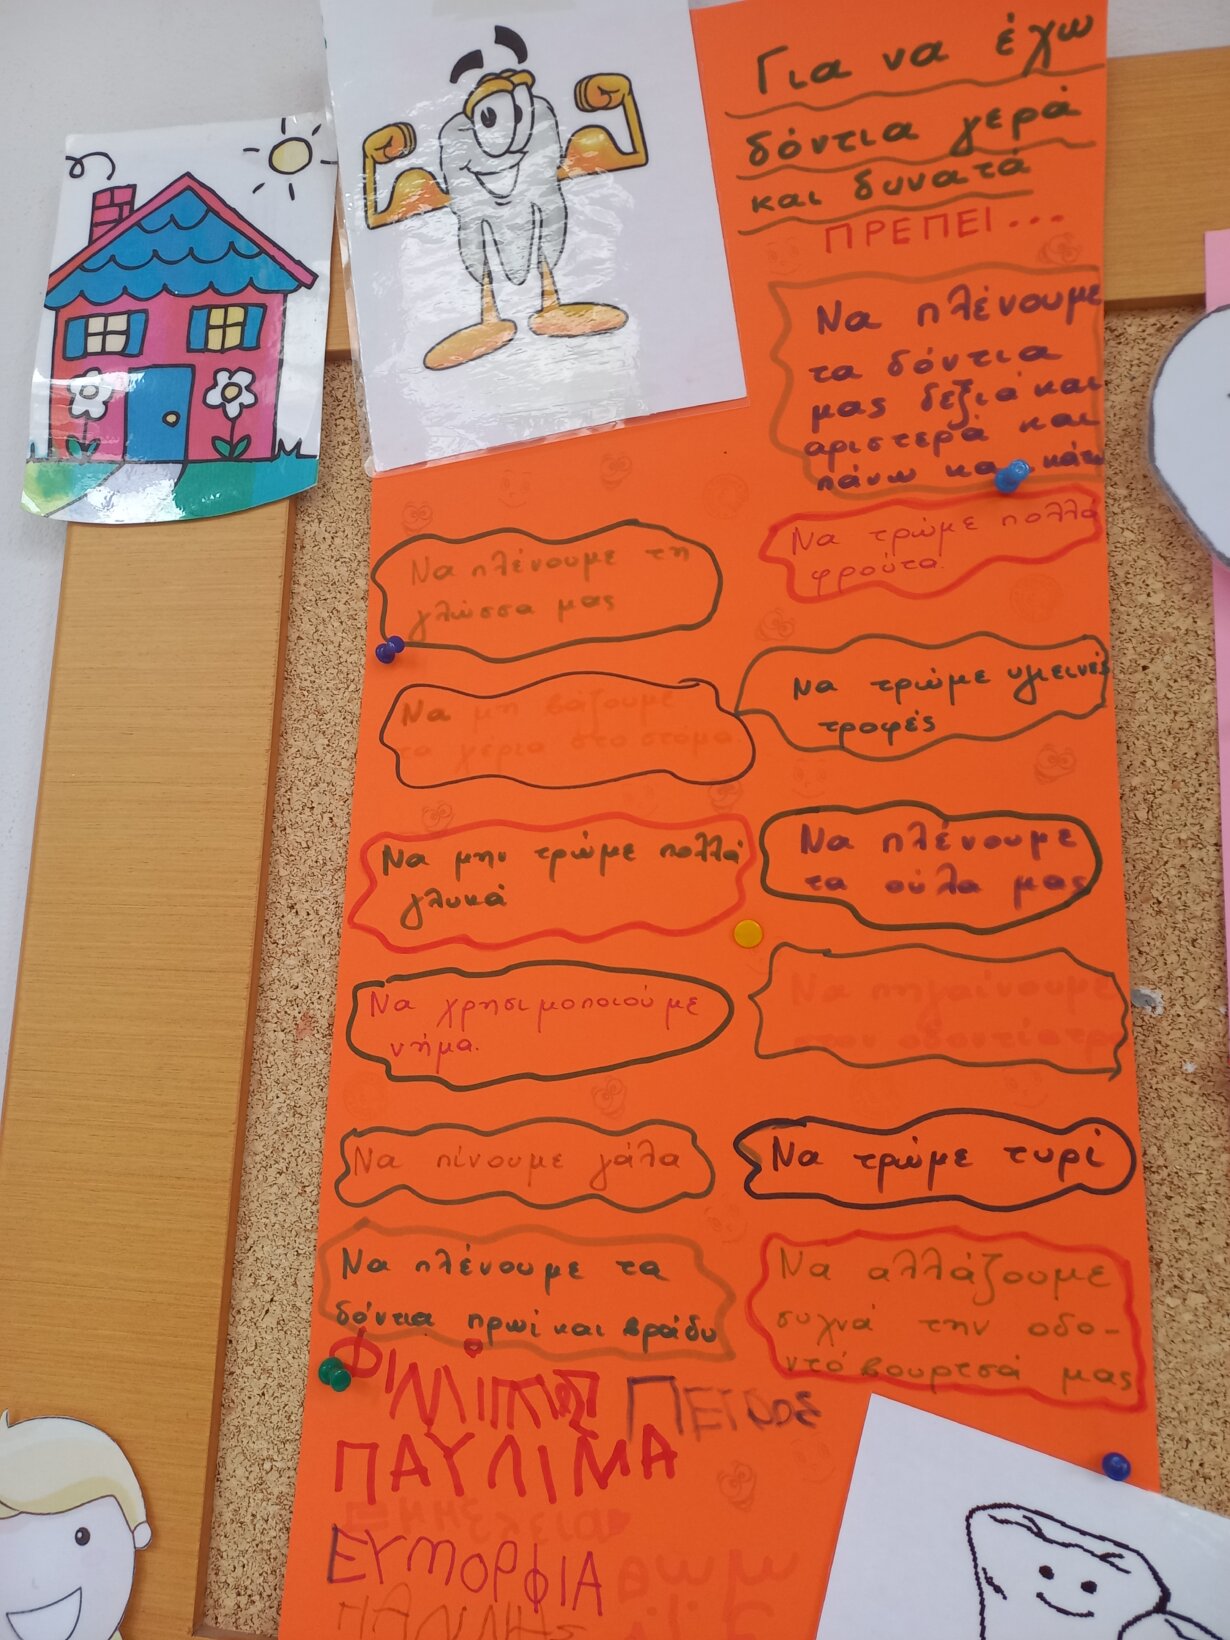 Για να έχω
δόντια γερά
και δυνατά
ΠΡΕΠΕΙ...
Να πλένουμε
τα δόντια
μας δεξιά και
αριστερά και
πάνω και κάτω
Να πλένουμε τη
γλώσσα μας
Να τρώμε πολλά
φρούτα.
Να μη βάζουμε
τα χέρια στο στόμα
Να τρώμε υγιεινές
τροφές
Να μην τρώμε πολλά
γλυκά
Να πλένουμε
τα ούλα μας
Να χρησιμοποιούμε
νήμα.
Να πηγαίνουμε
στον οδοντίατρο
Να πίνουμε γάλα
Να τρώμε τυρί
Να πλένουμε τα
δόντια πρωί και βράδυ
Να αλλάζουμε
συχνά την οδο-
ντόβουρτσά μας
ΠΕΤΡΟΣ
ΠΑΥΛΙΜΑ
ΕΥΜΟΡΦΙΑ